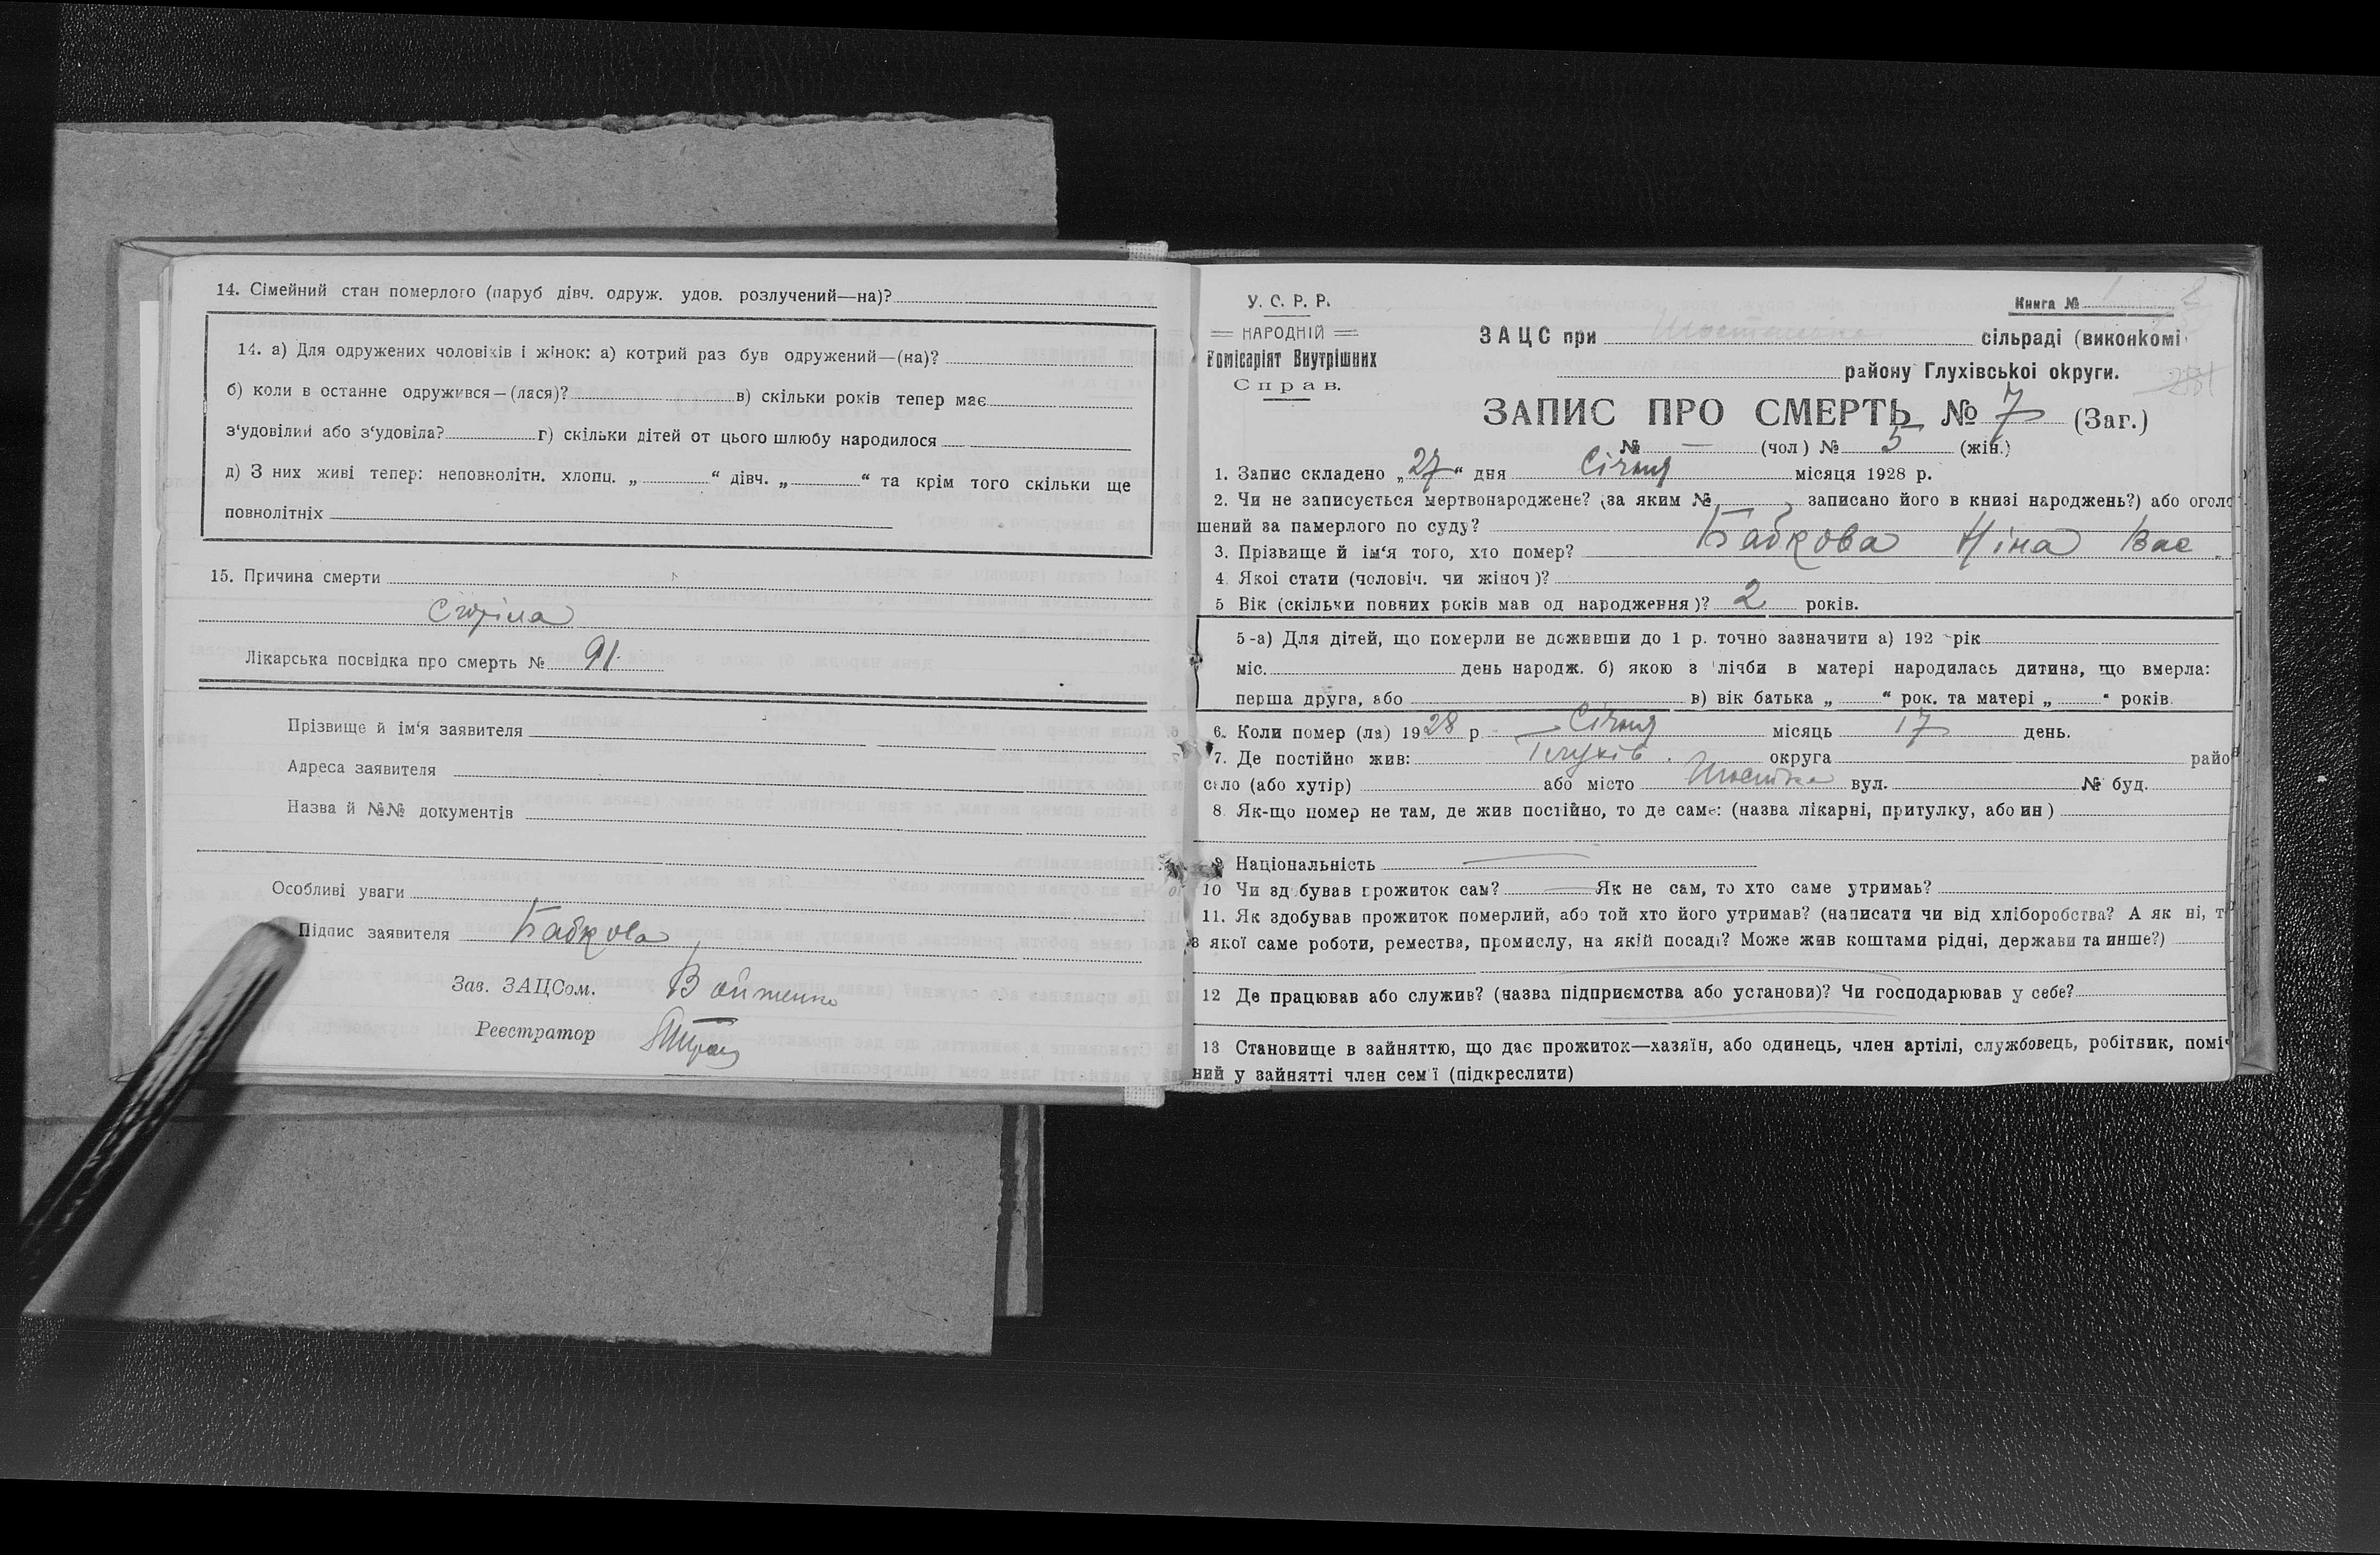 14. Сімейний стан померлого (паруб дівч. одруж. удов. розлучений—на)?
14. а) Для одружених чоловіків і жінок: а) котрий раз був одружений—(на)?
б) коли в останне одружився—(лася)? в) скільки років тепер має
з‘удовілий або з‘удовіла? г) скільки дітей от цього шлюбу народилося
д) З них живі тепер: неповнолітн. хлопц. „ “ дівч. „ “ та крім того скільки ще
повнолітніх
15. Причина смерти
Лікарська посвідка про смерть № 91.
Прізвище й ім‘я заявителя
Адреса заявителя
Назва й №№ документів
Особливі уваги
Підпис заявителя Бабкова
Зав. ЗАЦСом.
Реєстратор
У. С. Р. Р.
НАРОДНІЙ
Комісаріят Внутрішніх
Справ.
Книга № 1
ЗАЦС при сільраді (виконкомі
району Глухівської округи.
ЗАПИС ПРО СМЕРТЬ № 7 (Заг.)
№ — (чол) № 5 (жін.)
1. Запис складено „27“ дня Січня місяця 1928 р.
2. Чи не записується мертвонароджене? (за яким № записано його в книзі народжень?) або оголо
шений за памерлого по суду?
3. Прізвище й ім‘я того, хто помер? Бабкова Ніна Вас.
4. Якоі стати (чоловіч. чи жіноч)?
5 Вік (скільки повних років мав од народження)? 2 років.
5-а) Для дітей, що померли не доживши до 1 р. точно зазначити а) 192 рік
міс. день народж. б) якою з лічби в матері народилась дитина, що вмерла:
перша друга, або в) вік батька „ “ рок. та матері „ “ років.
6. Коли помер (ла) 1928 р. Січня місяць 17 день.
7. Де постійно жив: Глухів. округа райо
село (або хутір) або місто Шостка вул. № буд.
8. Як-що помер не там, де жив постійно, то де саме: (назва лікарні, притулку, або ин)
9 Національність —
10 Чи здобував прожиток сам? — Як не сам, то хто саме утримаь?
11. Як здобував прожиток померлий, або той хто його утримав? (написати чи від хліборобства? А як ні, т
з якої саме роботи, ремества, промислу, на якій посаді? Може жив коштами рідні, держави та инше?)
12 Де працював або служив? (назва підприємства або установи)? Чи господарював у себе?
13 Становище в зайняттю, що дає прожиток—хазяїн, або одинець, член артілі, службовець, робітник, поміч
ний у зайнятті член сем‘ї (підкреслити)